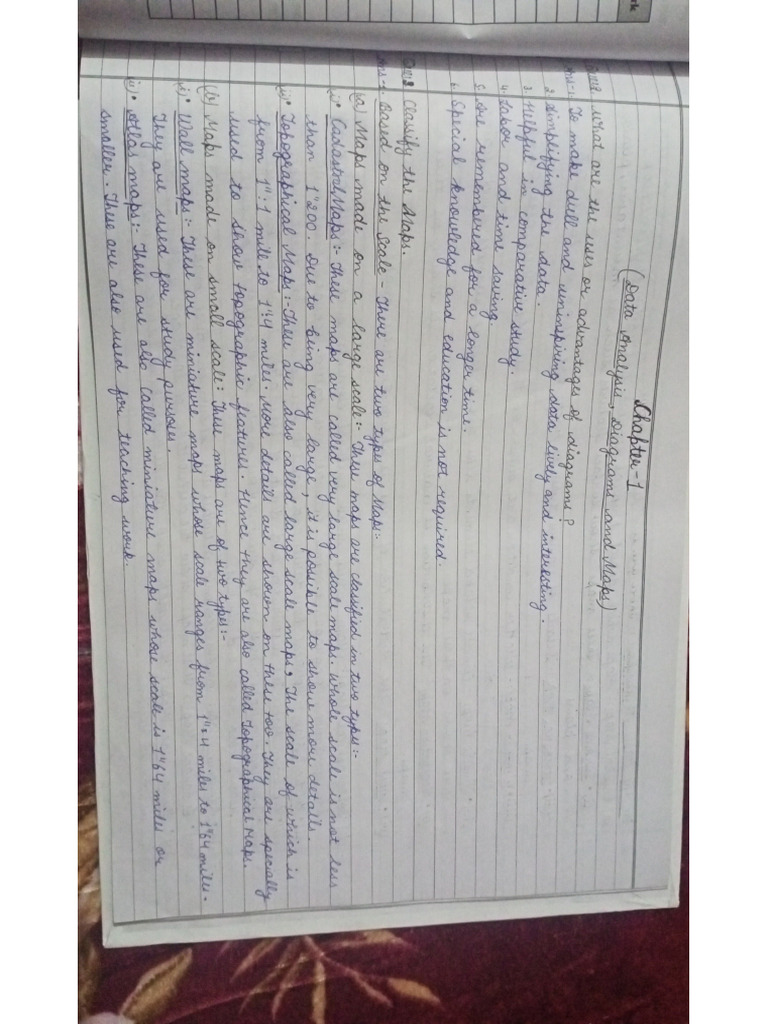 rk
Chapter-1
(Data Analysis, Diagrams and Maps)
What are the uses or advantages of diagrams?
Ans-1. To make dull and uninspiring data lively and interesting.
2. Simplifying the data.
3. Helpful in comparative study.
4. Labor and time saving
5. Are remembered for a longer time.
6. Special knowledge and education is not required.
Classify the Maps.
Ans-: Based on the Scale - There are two types of Map:-
(a) Maps made on a large scale:- These maps are classified in two types:-
(i)• Cadastral Maps:- These maps are called very large scale maps. Whole scale is not less
than 1"200. Due to being very large, it is possible to show more details.
(ii)• Topographical Maps:- These are also called large scale maps, The scale of which is
from 1":1 mile to 1":4 miles. More details are shown on these too. They are specially
used to show topographic features. Hence they are also called Topographical Maps.
(b) Maps made on small scale: These maps are of two types:-
(i)• Wall maps:- These are miniature maps whose scale ranges from 1":4 miles to 1"64 miles.
They are used for study purposes.
(ii)• Atlas maps:- These are also called miniature maps whose scale is 1"64 miles or
smaller. These are also used for teaching work.